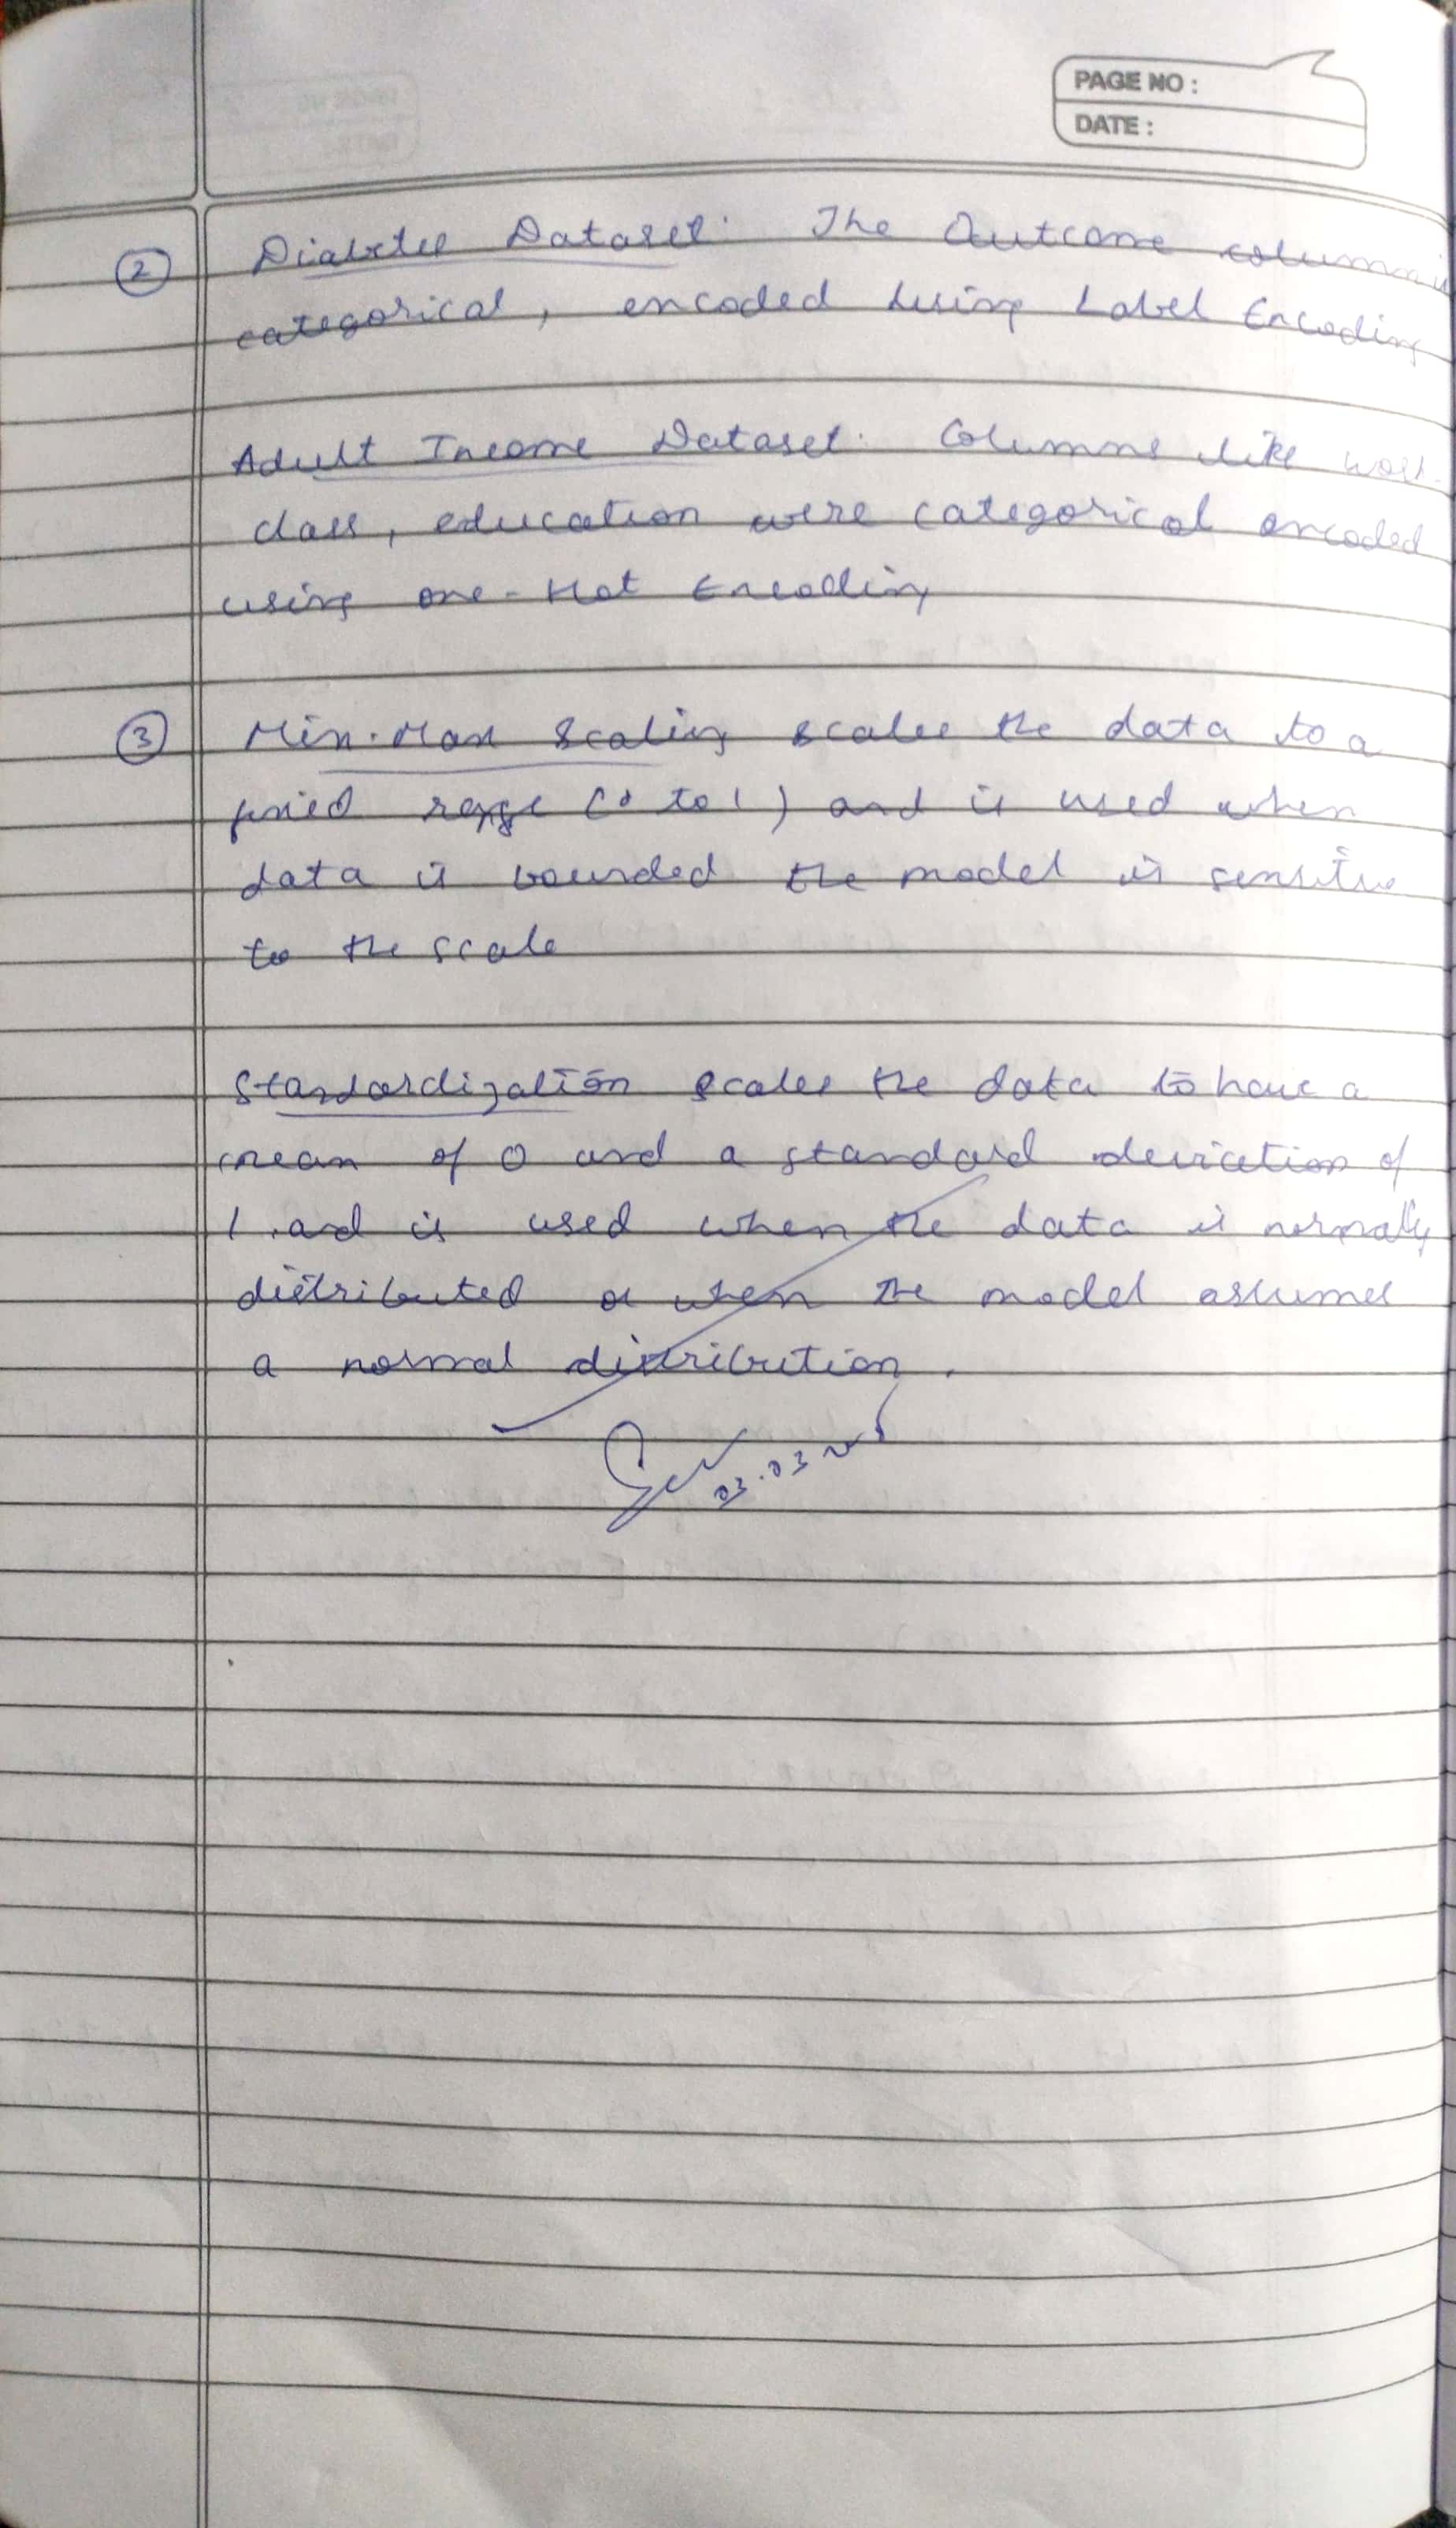 PAGE NO :
DATE :
② Diabetes Dataset: The Outcome column is
categorical, encoded using Label Encoding
Adult Income Dataset: Columns like work
class, education were categorical encoded
using one-Hot Encoding
③ Min-Max Scaling scales the data to a
fixed range (0 to 1) and is used when
data is bounded the model is sensitive
to the scale
Standardization scales the data to have a
mean of 0 and a standard deviation of
1 and is used when the data is normally
distributed or when the model assumes
a normal distribution.
03.03